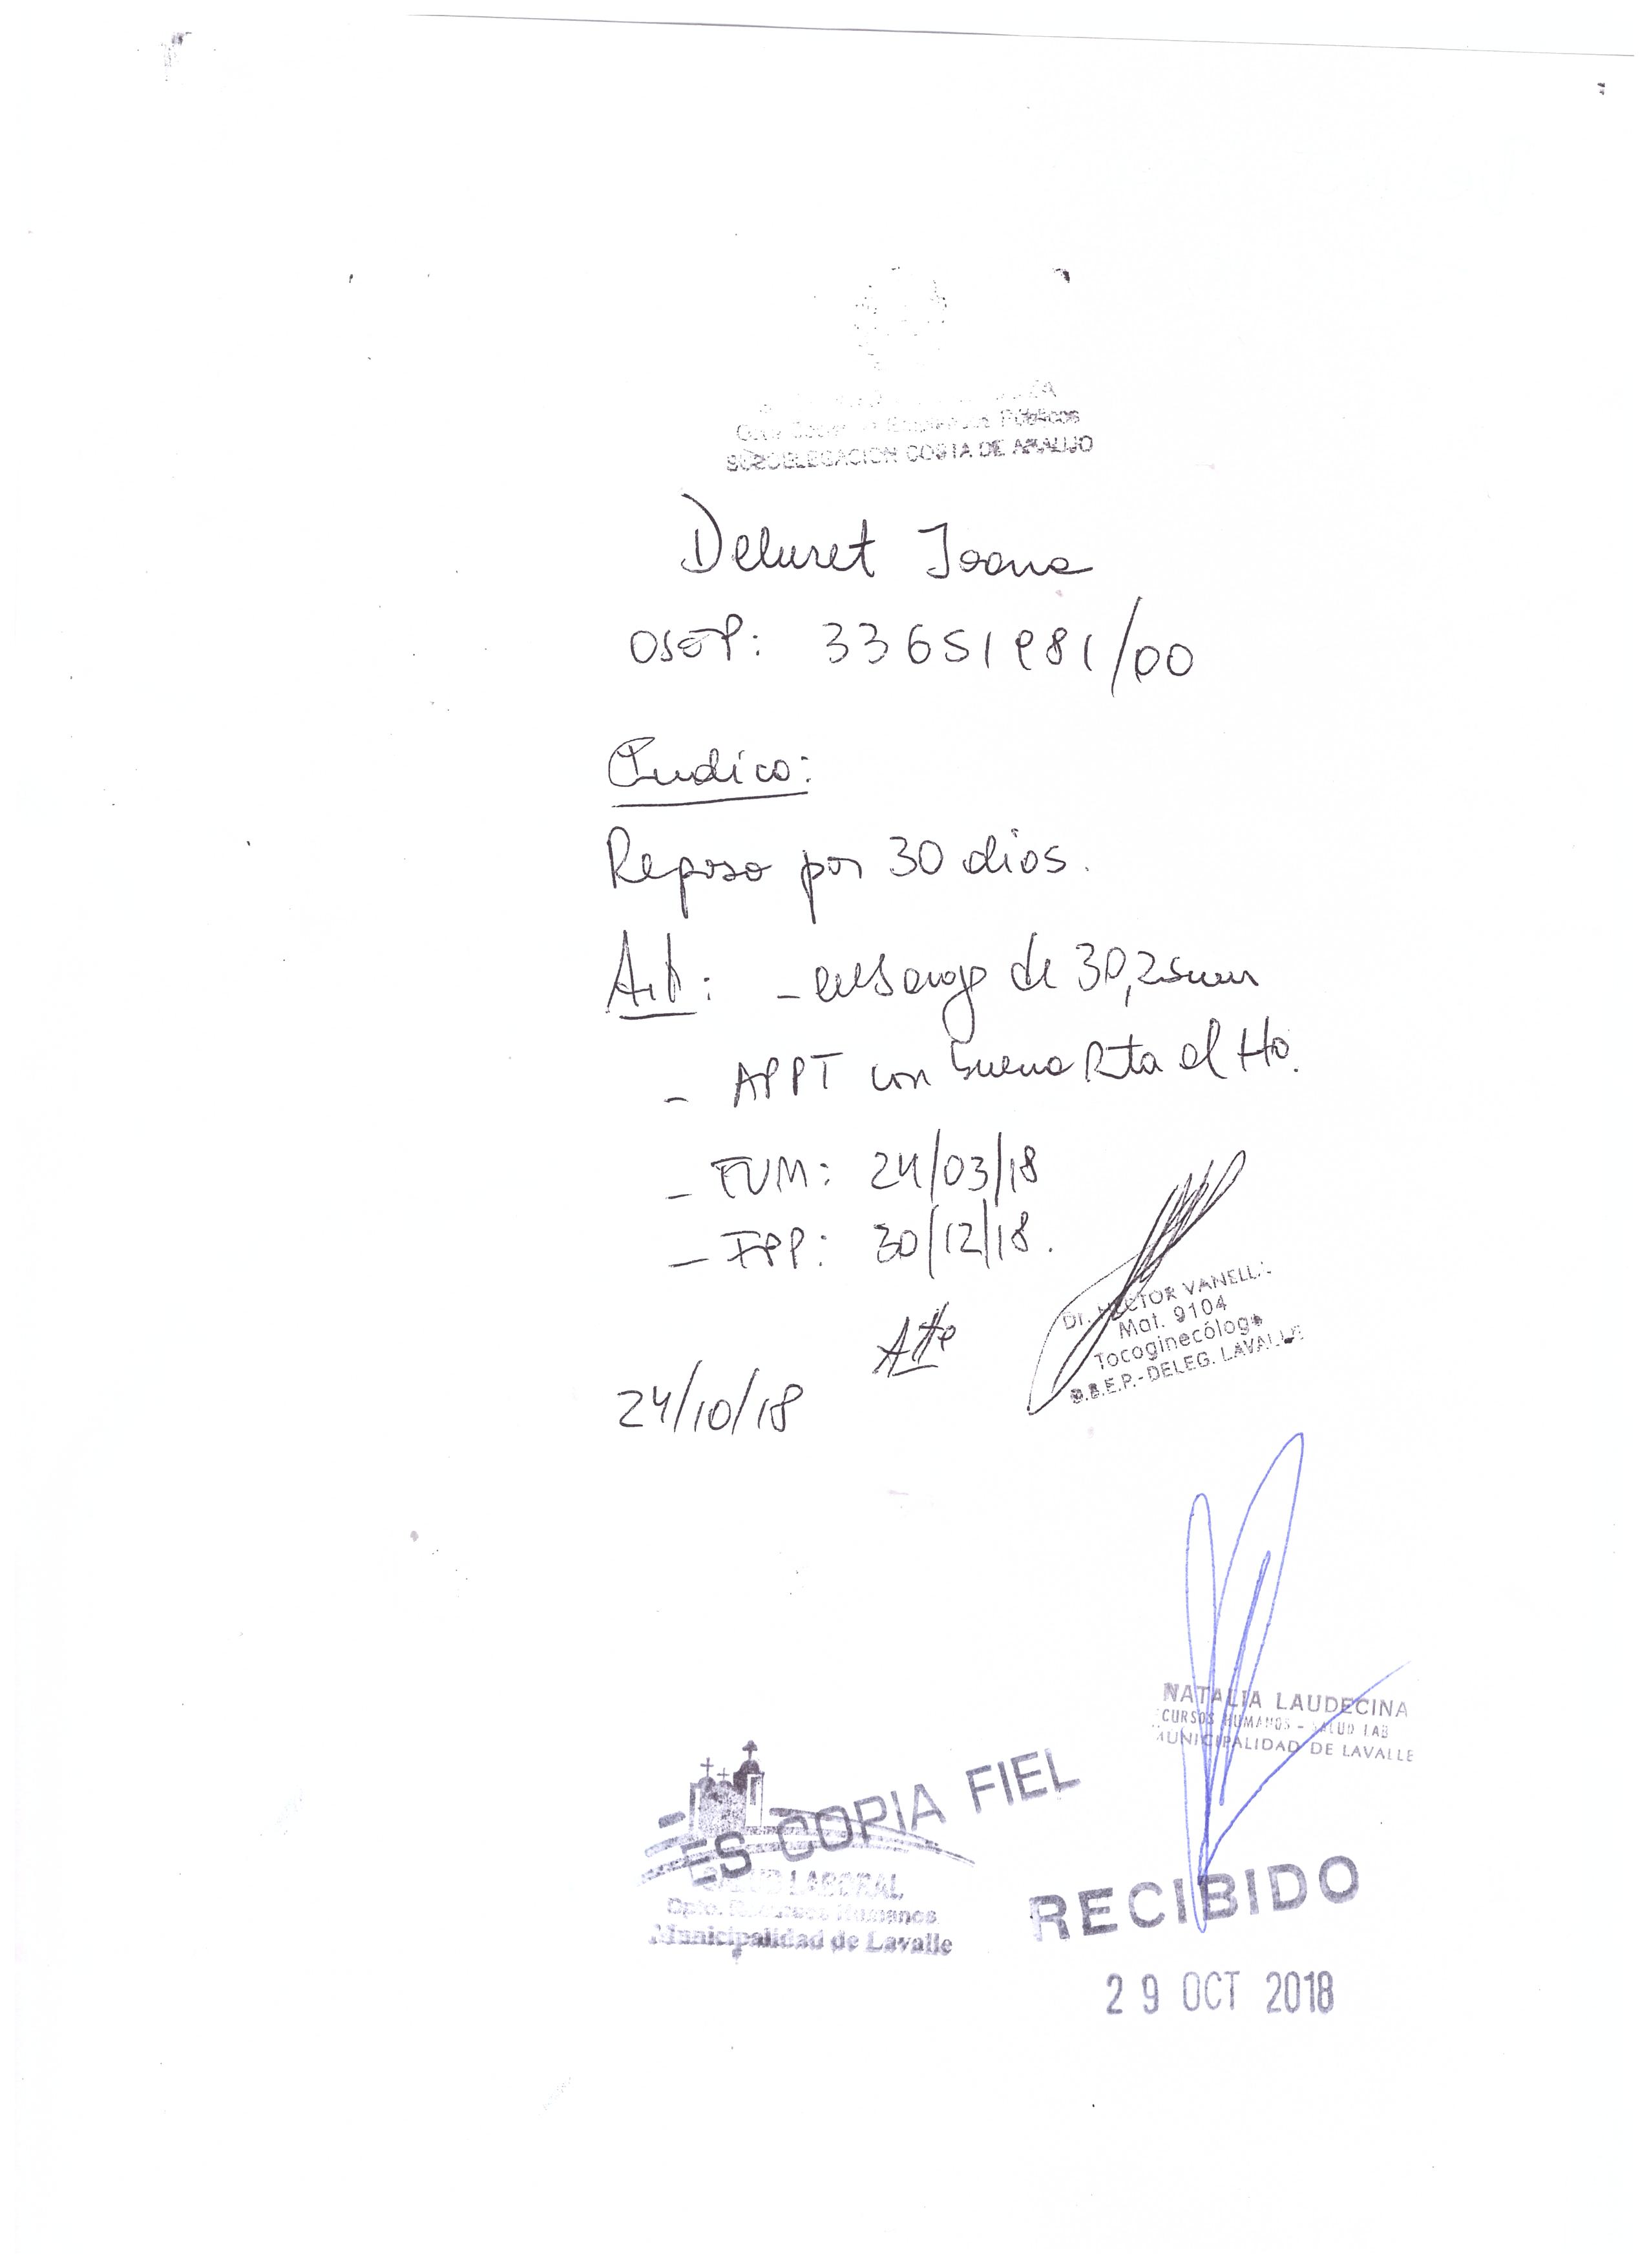 Públicos
SUBDELEGACION COSTA DE ARAUJO
Deluret Joana
OSEP: 33651981/00
Indico:
Reposo por 30 días.
- embarazo de 30,2 sem
- APPT con buena Rta al tto.
- FUM: 24/03/18
- FPP: 30/12/18.
Atte
Dr. HECTOR VANELLA
Mat. 9104
Tocoginecólogo
O.S.E.P.-DELEG. LAVALLE
24/10/18
NATALIA LAUDECINA
CURSOS HUMANOS - SALUD LAB
MUNICIPALIDAD DE LAVALLE
ES COPIA FIEL
SALUD LABORAL
Dpto. Recursos Humanos
Municipalidad de Lavalle
RECIBIDO
29 OCT 2018